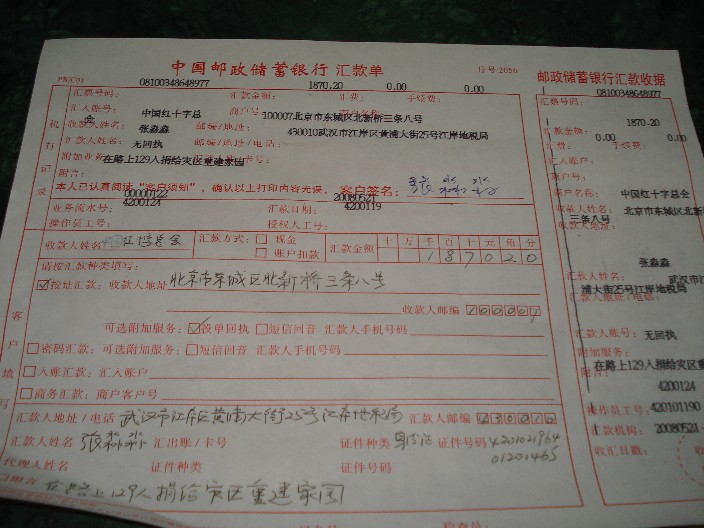 中国邮政储蓄银行 汇款单
行号:2056
邮政储蓄银行汇款收据
汇票号码: 08100348648977 汇款金额: 1870.20 汇费: 0.00 手续费: 0.00
汇入账号: 中国红十字总会 商户号: 100007北京市东城区北新桥三条八号
收款人姓名: 张淼淼 邮编/地址: 430010武汉市江岸区黄浦大街25号江岸地税局
汇款人姓名: 无回执 邮编/地址/电话:
附加业务 在路上129人捐给灾区重建家园 卡号:
附言:
本人已认真阅读“客户须知”,确认以上打印内容无误。 客户签名: 张淼淼
00000122 20080521
业务流水号: 4200124 汇款日期: 4200119
操作员工号: 授权人工号:
机打记录
收款人姓名 中国红十字总会 汇款方式: 现金 账户扣款 汇款金额 十万千百十元角分 187020
请按汇款种类填写:
按址汇款: 收款人地址 北京市东城区北新桥三条八号
收款人邮编 100007
可选附加服务: 投单回执 短信回音 汇款人手机号码
密码汇款: 可选附加服务: 短信回音 汇款人手机号码
入账汇款: 汇入账户
商务汇款: 商户客户号
汇款人地址/电话 武汉市江岸区黄浦大街25号江岸地税局 汇款人邮编 430010
汇款人姓名 张淼淼 汇出账/卡号 证件种类 身份证 证件号码
代理人姓名 证件种类 证件号码
在路上129人捐给灾区重建家园
客户填写
汇票号码: 08100348648977
汇款金额: 1870.20
汇费: 0.00 手续费: 0.00
汇入账户:
商户号:
客户名称: 中国红十字总会
收款人姓名: 北京市东城区北新
三条八号
收款人地址:
汇款人姓名: 张淼淼
武汉市江
浦大街25号江岸地税局
汇款人账号: 无回执
附加服务:
在路上129人捐给灾区重
附言:
4200124
操作员工号: 420101190
汇款机构: 20080521
收汇日戳: